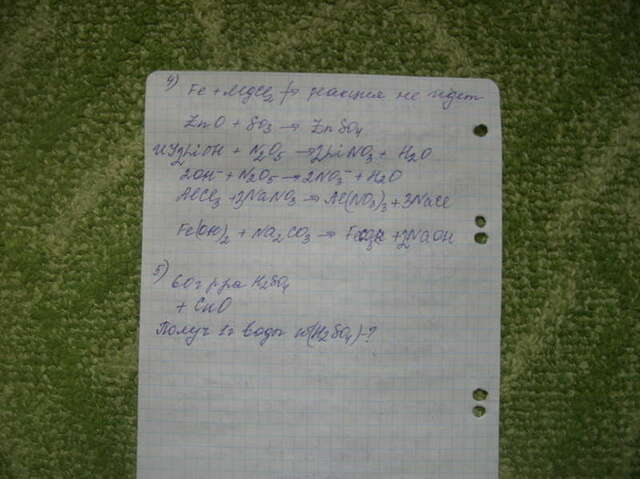 4) Fe + MgCl₂ ↛ реакция не идет
ZnO + SO₃ → ZnSO₄
2LiOH + N₂O₅ → 2LiNO₃ + H₂O
2OH⁻ + N₂O₅ → 2NO₃⁻ + H₂O
AlCl₃ + 3NaNO₃ → Al(NO₃)₃ + 3NaCl
Fe(OH)₂ + Na₂CO₃ → + 2NaOH
5) 60 г р-ра H₂SO₄
+ CuO
Получ 1г воды w(H₂SO₄)-?